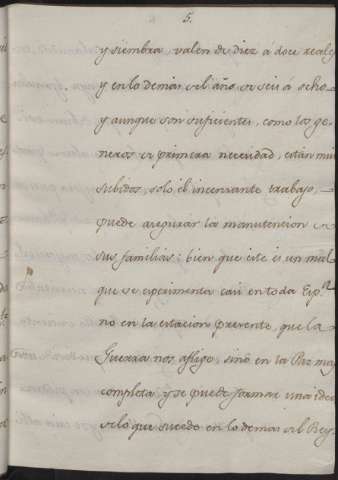 5.
y siembra valen de diez á doce reales
y en lo demas del año de seis á ocho
y aunque son suficientes, como los ge-
neros de primera necesidad, están mui
subidos, solo él incensante trabajo,
puede asegurar la manutencion de
sus familias: bien que éste és un mal
que se esperimenta casi en toda Esp.ª
no en la estacion presente, que la
Guerra nos aflige, sinó en la Paz mas
completa, y se puede formar una idea
de lo que sucede en lo demas del Rey-